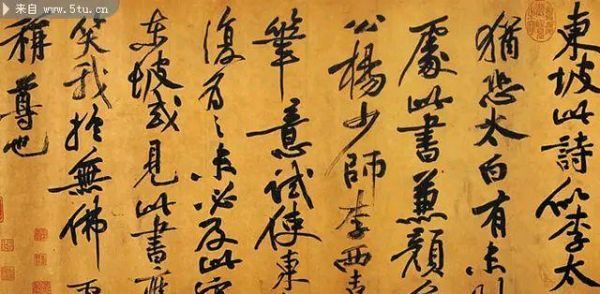 来自 www.5tu.cn
東坡此詩似李太
猶恐太白有未到
處此書兼顏
公楊少師李西臺
筆意試使東
復為之未必及此
東坡或見此書應
笑我於無佛
稱尊也